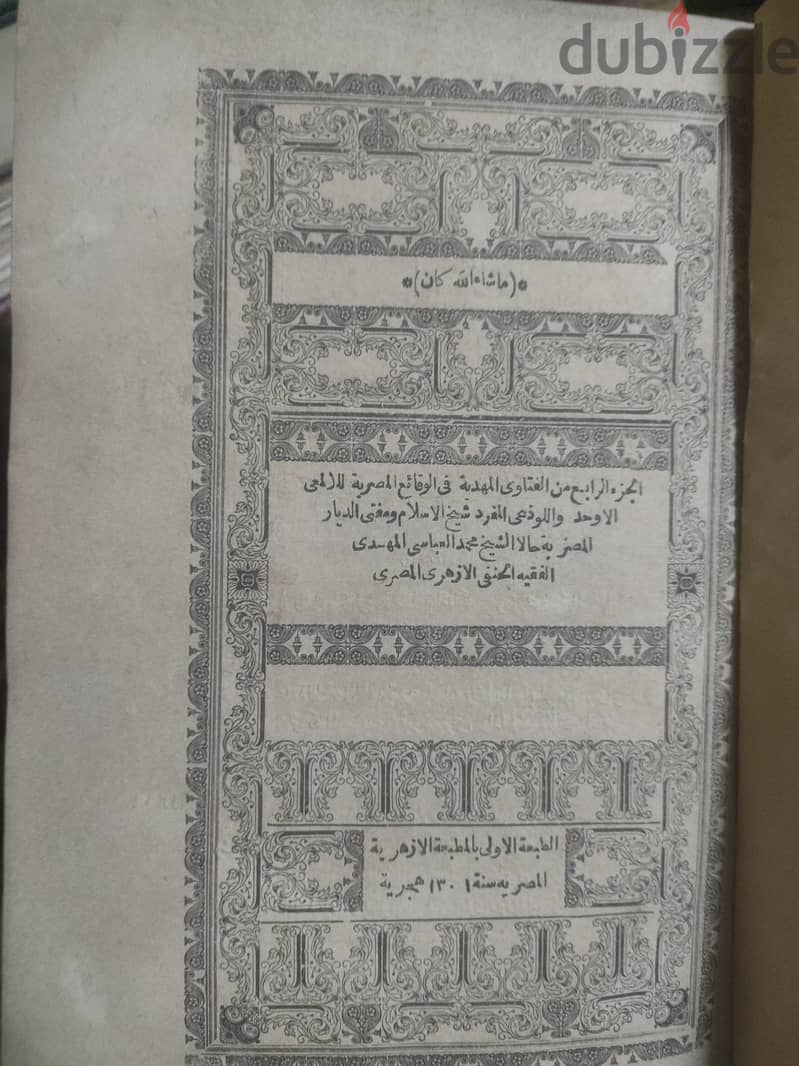 dubizzle
*(ما شاء الله كان)*
الجزء الرابع من الفتاوى المهدية فى الوقائع المصرية للالمعى
الاوحد واللوذعى المفرد شيخ الاسلام ومفتى الديار
المصرية حالا الشيخ محمد العباسى المهدى
الفقيه الحنفى الازهرى المصرى
الطبعة الاولى بالمطبعة الازهرية
المصريه سنة ١٣٠١ هجرية